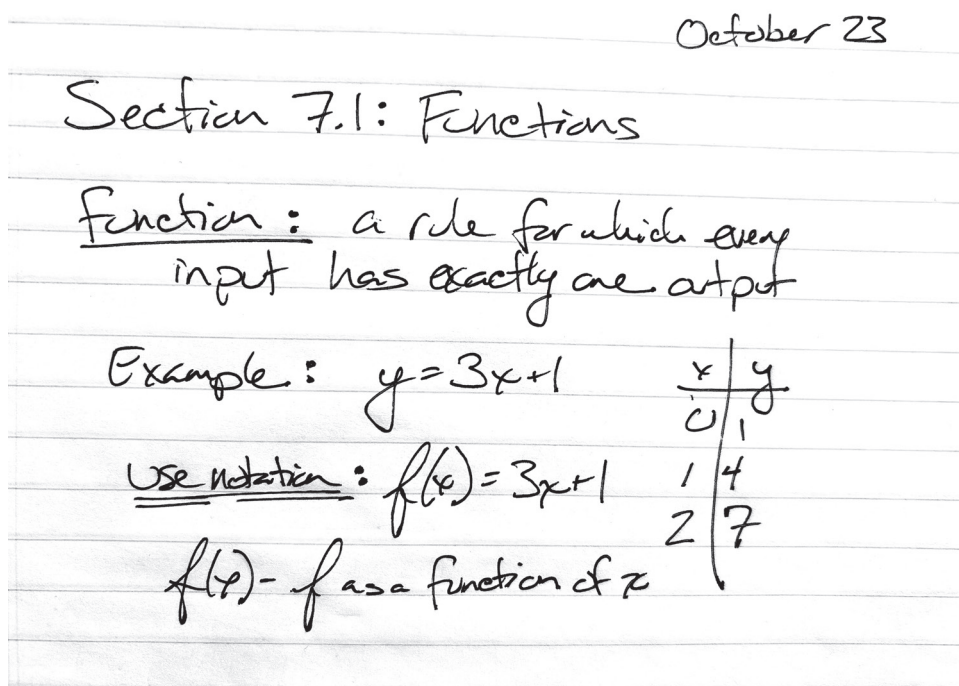 October 23
Section 7.1: Functions
Function: a rule for which every
input has exactly one output
Example: y=3x+1
x y
0 1
Use notation: f(x)=3x+1
1 4
2 7
f(x) - f as a function of x